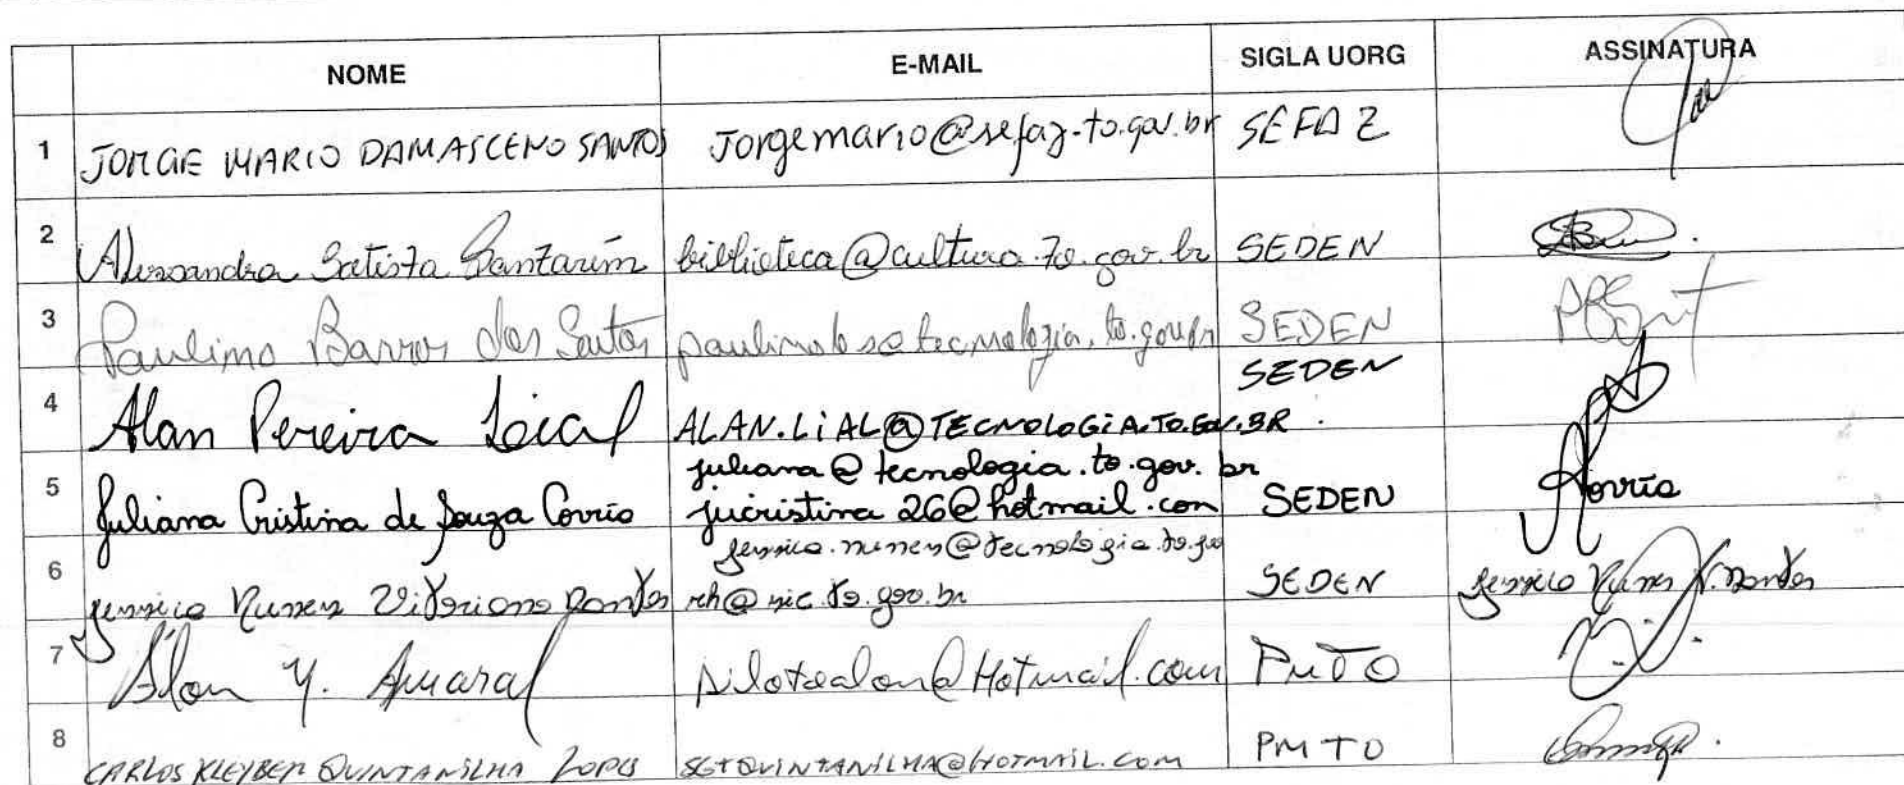 NOME E-MAIL SIGLA UORG ASSINATURA
1 JORGE MARIO DAMASCENO SANTOS Jorgemario@sefaz-to.gov.br SEFAZ
2 Alessandra Batista Santarém biblioteca@cultura.to.gov.br SEDEN
3 Paulino Barros dos Santos paulinobs@tecnologia.to.gov.br SEDEN
SEDEN
4 Alan Pereira Leal ALAN.LiAL@TECNOLOGiA.TO.GOV.BR.
juliana@tecnologia.to.gov.br
5 Juliana Cristina de Souza Corrêa jucristina26@hotmail.com SEDEN
jessica.nunes@tecnologia.to.gov
6 Jessica Nunes Vitoriano Pontes rh@sic.to.gov.br SEDEN Jessica Nunes V. Pontes
7 Alan Y. Amaral pilotoalan@Hotmail.com PMTO
8 CARLOS KLEYBER QUINTANILHA LOPES SGTQUINTANILHA@HOTMAIL.COM PMTO